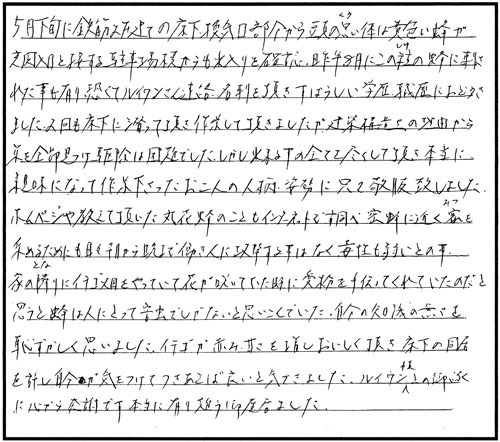 5月下旬に鉄筋2階建ての床下換気口部分から頭の黒い体は黄色い蜂が
玄関入口と接する駐車場横からも出入りを確認、昨年8月にこの種の蜂に刺さ
れた事も有り恐くてルイワンさんに連絡、名刺を頂きすばらしい学歴、職歴におどろき
ました。2回も床下に潜って頂き作業して頂きましたが建築構造上の理由から
巣を全部見つけ駆除は困難でした。しかし出来る事の全てを尽くして頂き本当に
親味になって作業下さったお二人の人柄、姿勢に只々敬服致しました。
ホームページや教えて頂いた丸花蜂のこともインターネットで調べ蜜蜂に近く蜜を
集めるためにも日を朝から晩まで働き人に攻撃する事はなく毒性も弱いとの事。
家の隣りにイチゴ畑をやっていて花が咲いていた時に受粉を手伝ってくれていたのだと
思うと蜂は人にとって害虫でしかないと思いこんでいた自分の知識の無さを
恥ずかしく思いました。イチゴが赤み甘さを増しおいしく頂き床下の同居
を許し自分が気をつけてつきあえば良いと気づきました。ルイワン様との御縁
に心から感謝です本当に有り難う御座いました。